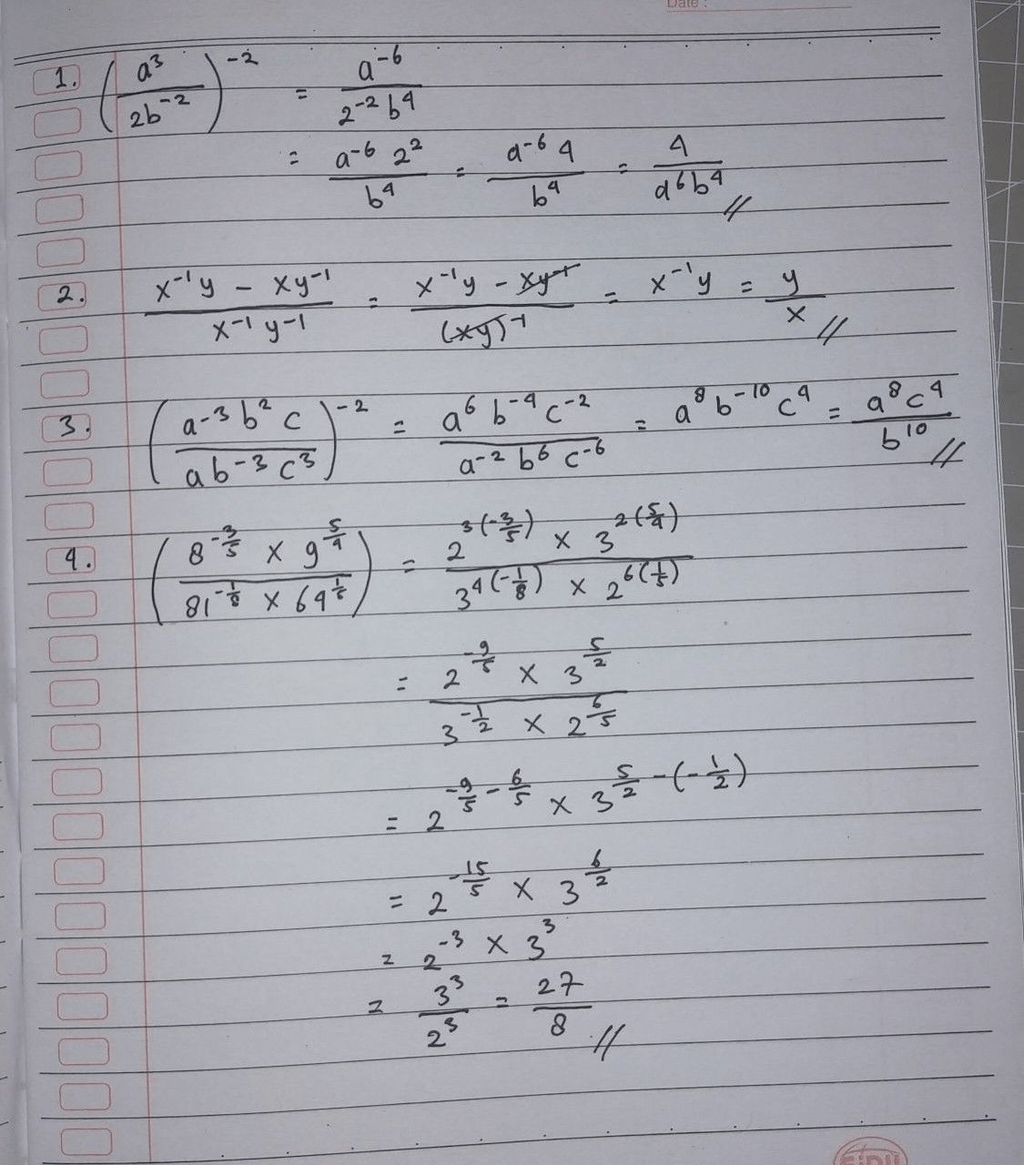 Date :
1. (a³/2b⁻²)⁻² = a⁻⁶/2⁻²b⁴
= a⁻⁶ 2²/b⁴ = a⁻⁶ 4/b⁴ = 4/a⁶b⁴ //
2. x⁻¹y - xy⁻¹/x⁻¹y⁻¹ = x⁻¹y - xy⁻¹/(xy)⁻¹ = x⁻¹y = y/x //
3. (a⁻³b²c/ab⁻³c³)⁻² = a⁶b⁻⁴c⁻²/a⁻²b⁶c⁻⁶ = a⁸b⁻¹⁰c⁴ = a⁸c⁴/b¹⁰ //
4. (8^(-3/5) × 9^(5/4)/81^(-1/8) × 64^(1/5)) = 2^(3(-3/5)) × 3^(2(5/4))/3^(4(-1/8)) × 2^(6(1/5))
= 2^(-9/5) × 3^(5/2)/3^(-1/2) × 2^(6/5)
= 2^(-9/5 - 6/5) × 3^(5/2 - (-1/2))
= 2^(-15/5) × 3^(6/2)
= 2⁻³ × 3³
= 3³/2³ = 27/8 //
SiDU